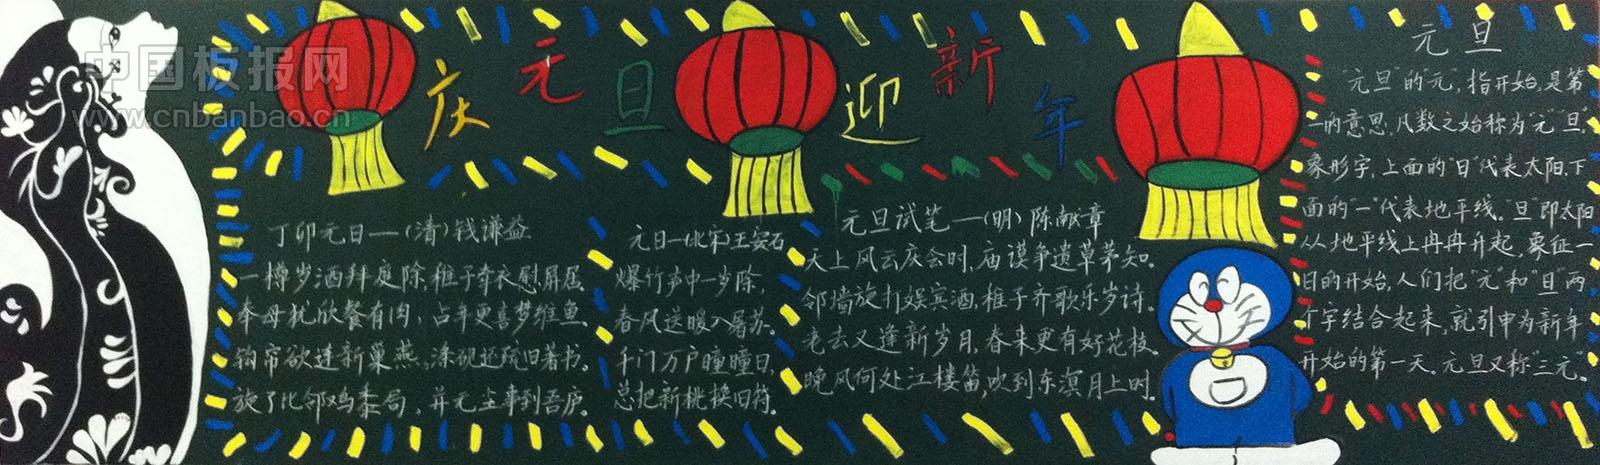 中国板报网
www.cnbanbao.cn
庆元旦迎新年
丁卯元日——(清)钱谦益
一樽岁酒拜庭除,稚子牵衣慰屏居.
奉母犹欣餐有肉,占年更喜梦维鱼.
钩帘欲迸新巢燕,涤砚还疏旧著书.
旋了比邻鸡黍局,并无尘事到吾庐.
元日—(北宋)王安石
爆竹声中一岁除,
春风送暖入屠苏.
千门万户曈曈日,
总把新桃换旧符.
元旦试笔——(明)陈献章
天上风云庆会时,庙谟争遗草茅知.
邻墙旋打娱宾酒,稚子齐歌乐岁诗.
老去又逢新岁月,春来更有好花枝.
晚风何处江楼笛,吹到东溟月上时.
元旦
"元旦"的"元",指开始,是第
一的意思,凡数之始称为"元""旦",
象形字,上面的"日"代表太阳,下
面的"一"代表地平线。"旦"即太阳
从地平线上冉冉升起,象征一
日的开始,人们把"元"和"旦"两
个字结合起来,就引申为新年
开始的第一天。元旦又称"三元"。